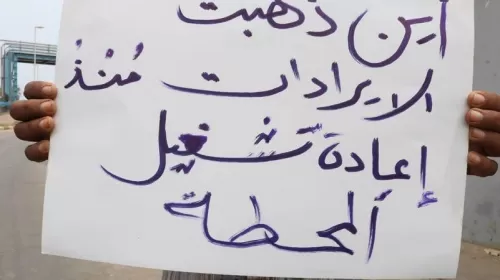 أين ذهبت
الايرادات مُنذُ
إعادة تشغيل
المحطة